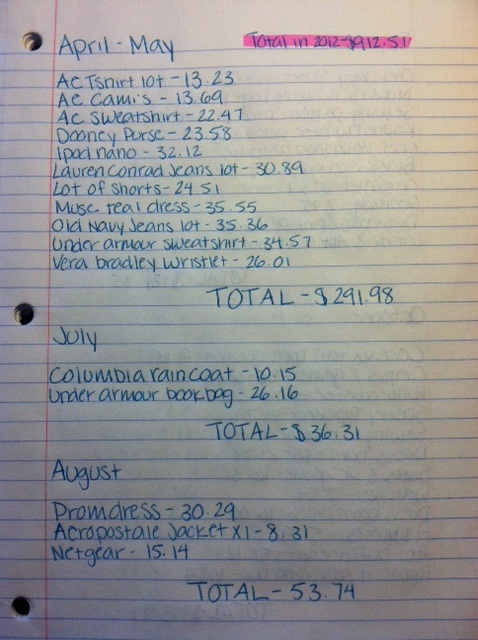 April - May
Total in 2012-$912.51
Ae Tshirt lot - 13.23
Ae Cami's - 13.69
Ae sweatshirt - 22.47
Dooney Purse - 23.58
Ipod nano - 32.12
Lauren Conrad Jeans lot - 30.89
Lot of shorts - 24.51
Musc teal dress - 35.55
Old Navy Jeans lot - 35.36
Under armour sweatshirt - 34.57
Vera bradley wristlet - 26.01
TOTAL - $291.98
July
Columbia rain coat - 10.15
Under armour bookbag - 26.16
TOTAL - $36.31
August
Promdress - 30.29
Aeropostale Jacket X1 - 8.31
Netgear - 15.14
TOTAL - 53.74